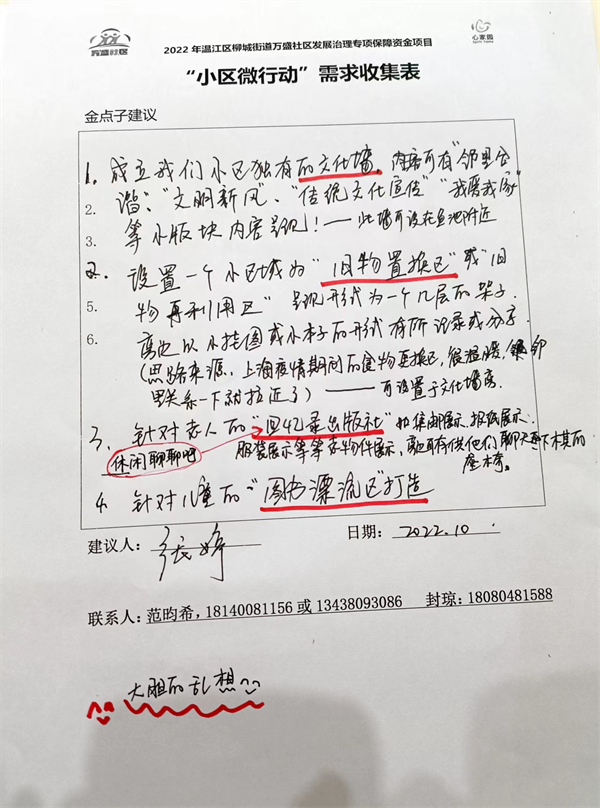 万盛社区
心家园
2022 年温江区柳城街道万盛社区发展治理专项保障资金项目
“小区微行动”需求收集表
金点子建议
1. 成立我们小区独有的文化墙,内容可有“邻里合
2. 谐”、“文明新风”、“传统文化宣传”“我爱我家”
3. 等小版块内容呈现!——此墙可设在鱼池附近
2. 设置一个小区域为“旧物置换区”或“旧
5. 物再利用区”呈现形式为一个几层的架子.
6. 旁边以小挂图或小本子的形式有所记录或分享
(思路来源,上海疫情期间的食物更换区,很温暖,邻
里关系一下就拉近了)——可设置于文化墙旁
3. 针对老人的“回忆录出版社”如集邮展示、报纸展示、
休闲聊聊吧
服装展示等等老物件展示,旁边可有供他们聊天下棋的
座椅。
4. 针对儿童的“图书漂流区”打造
建议人:张婷
日期:2022.10.
联系人:范昀希,18140081156 或 13438093086 封琼:18080481588
大胆的乱想^^